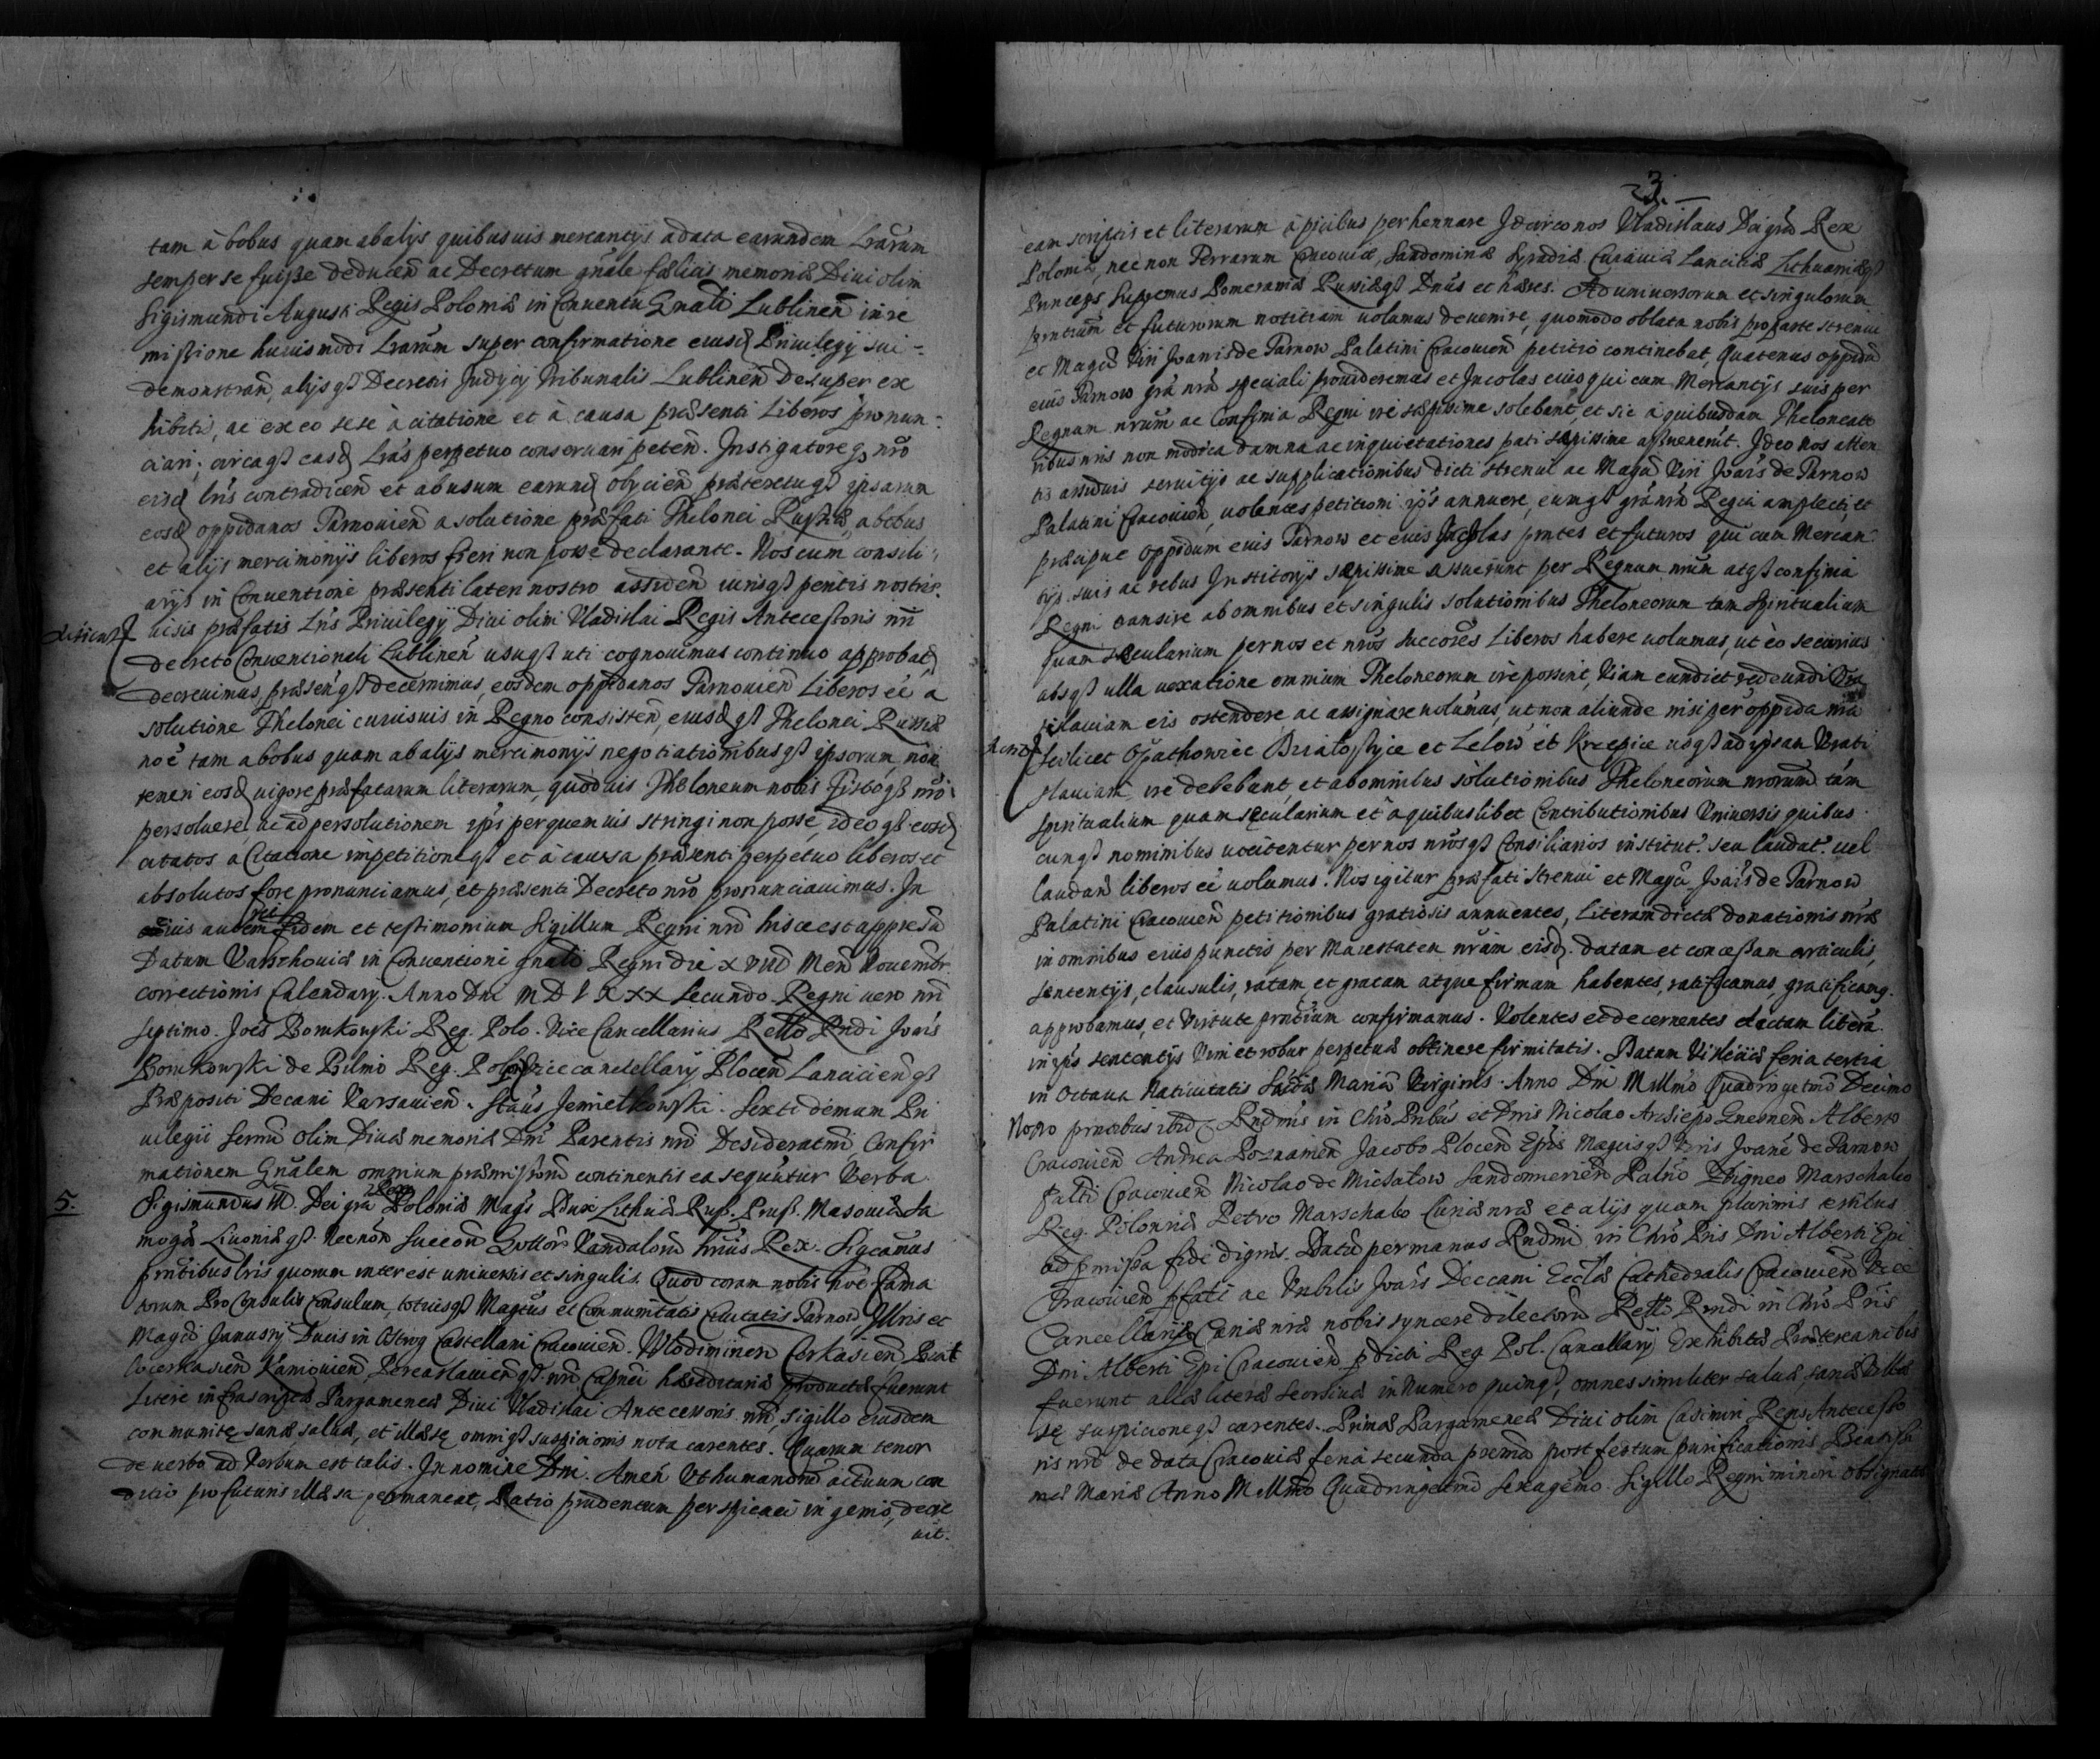 tam à bobus quam ab alijs quibusuis mercantijs a data earundem Lrarum
semper se fuisse deducen ac Decretum gnale faelicis memoriae Diui olim
Sigismundi Augusti Regis Poloniae in Conuentu Gnali Lublinen in re
missione huiusmodi Lrarum super confirmatione eiusd Priuilegij sui
demonstran, alijsq Decretis Judicij Tribunalis Lublinen desuper ex
hibitis, ac ex eo sese à citatione et à causa praesenti Liberos pronun:
ciari; circaq easd Lras perpetuo conseruari peten. Instigatore nro
eisd lris contradicen et abusum earund obijcien praetextuq ipsarum
eosd oppidanos Tarnouien a solutione praefati Thelonei Russiae, a bobus
et alijs mercimonijs liberos fieri non posse declarante. Nos cum consili:
arijs in Conuentione praesenti lateri nostro assiden iurisq peritis nostris.
uisis praefatis Lris Priuilegij Diui olim Vladislai Regis Antecessoris nri
decreto Conuentionali Lublinen usuq uti cognouimus continuo approbat,
decreuimus, praesenq decernimus, eosdem oppidanos Tarnouien Liberos eē a
solutione Thelonei cuiusuis in Regno consisten, eiusdq Thelonei Russiae
noē tam a bobus quam ab alijs mercimonijs negotiationibusq ipsorum, non
teneri eosd uigore praefatarum literarum, quoduis Theloneum nobis Fiscoq nro
persoluere, ac ad persolutionem ipsi per quemuis stringi non posse, ideoq eosd
citatos a Citatione impetitioneq et à causa praesenti perpetuo liberos et
absolutos fore pronunciamus, et praesenti Decreto nro pronunciauimus. In
cuius autem rei fidem et testimonium Sigillum Regni nri hisce est appressū
Datum Varschouiae in Conuentione gnali Regni die XVIII Men Nouembr
correctionis Calendarij. Anno Dni MDLXXX secundo. Regni uero nri
septimo. Joēs Bomkowski Reg. Polo. Vice Cancellarius Rello Rndi Joais
Bomkowski de Bilmo Reg. Polo Vicecancellarij Plocen Lancicienq
Praepositi Decani Varsauien. Staus Jemietkowski. Sexti demum Pri
uilegii Sermi olim Diuae memoriae Dni Parentis nri Desideratmi, Confir
mationem Gnalem omnium praemissorū continentis ea sequntur Verba.
5. Sigismundus III. Dei gra Rex Poloniae Mags Dux Lithuae Rus. Prus. Masouiae Sa
mogū Liuoniaeq. Necnon Suecorū Gottorū Vandalorū hrius Rex. Sigcamus
prntibus lris quorum interest uniuersis et singulis. Quod coram nobis noē Fama
torum Proconsulis Consulum, totiusq Magtus et Communitatis Ciuitatis Tarnow Illris et
Magci Janusij Ducis in Ostrog Castellani Cracouien. Wlodimirien Cerkasien Biał
locerkasien Kaniouien Pereaslauienq. nri Capnei haereditariae productae fuerunt
literae infrascriptae Pargameneae Diui Vladislai Antecessoris nri, sigillo eiusdem
communitę sanae, saluae, et illaesę omniq suspicionis nota carentes. Quarum tenor
de uerbo ad Verbum est talis. In nomine Dni. Amen Vt humanorū actuum con
ditio pro futuris illaesa permaneat, Ratio prudentum perspicaci ingenio, decre
uit.
3.
eam scriptis et literarum apicibus perhennare Idcirco nos Vladislaus Dei gra Rex
Poloniae, nec non Terrarum Cracouiae, Sandomiriae Syradiae Cuiauiae Lanciciae Lithuaniaeq
Princeps Supremus Pomeraniae Russiaeq Dnus et haeres. Ad uniuersorum et singulorum
prntium et futurorum notitiam uolumus deuenire, quomodo oblata nobis pro parte strenui
et Magci Viri Joanis de Tarnow Palatini Cracouien petitio continebat, Quatenus oppidū
eius Tarnow gra nra speciali prouideremus et Incolas eius qui cum Mercantijs suis per
Regnum nrum ac Confinia Regni ire saepissime solebant, et sic à quibusdam Theloneato
ribus nris non modica damna ac inquietationes pati saepissime assueuerūt. Ideo nos atten
tis assiduis seruitijs ac supplicationibus dicti strenui ac Magci Viri Joais de Tarnow
Palatini Cracouien, uolentes petitioni ipis annuere, eumq gra nra Regia amplecti, et
praecipue oppidum eius Tarnow et eius Incolas prntes et futuros qui cum Mercan
tijs suis ac rebus Institorijs saepissime assuerunt per Regnum nrum atq confinia
Regni transire ab omnibus et singulis solutionibus Theloneorum tam Spiritualium
quam Secularium per nos et nros succores Liberos habere uolumus, ut eo securius
absq ulla uexatione omnium Theloneorum ire possint, Viam eundi et redeundi
tislauiam eis ostendere ac assignare uolumus, ut non aliunde nisi per oppida nra
scilicet Opathowiec Busłostyce et Lelow et Krzepice usq ad ipsam Vrati
slauiam ire debebunt, et ab omnibus solutionibus Theloneorum nrorum tam
spiritualium quam secularium et à quibuslibet Contributionibus Vniuersis quibus
cunq nominibus uocitentur per nos nrosq Consiliarios institut. seu laudat. uel
laudand liberos eē uolumus. Nos igitur praefati Strenui et Magci Joais de Tarnow
Palatini Cracouien petitionibus gratiosis annuentes, literam dictae donationis nrae
in omnibus eius punctis per Maiestatem nram eisd. datam et concessam articulis,
sententijs, clausulis, ratam, et gratam atque firmam habentes, ratificamus, gratificamq.
approbamus, et Virtute prntium confirmamus. Volentes et decernentes dictam literā
in ipis sententijs Vim et robur perpetuae obtinere firmitatis. Datum Visliciae feria tertia
in Octaua Natiuitatis Sactae Mariae Virginis. Anno Dni Millmo Quadringetmo Decimo
Nono prntibus ibid Rndmis in Chro Pribus et Dnis Nicolao Archiepo Gnesnen Alberto
Cracouien Andrea Poznanien Jacobo Plocen Epis Magcisq Viris Joane de Tarnow
Cracouien Nicolao de Michałow Sandomirien Palno Zbigneo Marschalco
Reg. Poloniae Petro Marschalco Curiae nrae et alijs quam plurimis testibus
ad pmissa fide dignis. Datū per manus Rndmi in Chro Pris Dni Alberti Epi
Cracouien pfati ac Vnbilis Joais Deccani Eccliae Cathedralis Cracouien Vice
Cancellarij Curiae nrae nobis syncere dilectorū Rello Rmdi in Chro Pris
Dni Alberti Epi Cracouien pdicti Reg. Pol. Cancellarij Exhibitae Praeterea nobis
fuerunt aliae literae seorsiuae in Numero quinq, omnes similiter saluae, sanae Illae
sę suspicioneq carentes. Primae Pargameneae Diui olim Casimiri Regis Antecesso
ris nri de data Cracouiae feria secunda proxima post festum purificationis Beatissi
mae Mariae Anno Millmo Quadringetmo Sexagemo. Sigillo Regni minori obsignatae